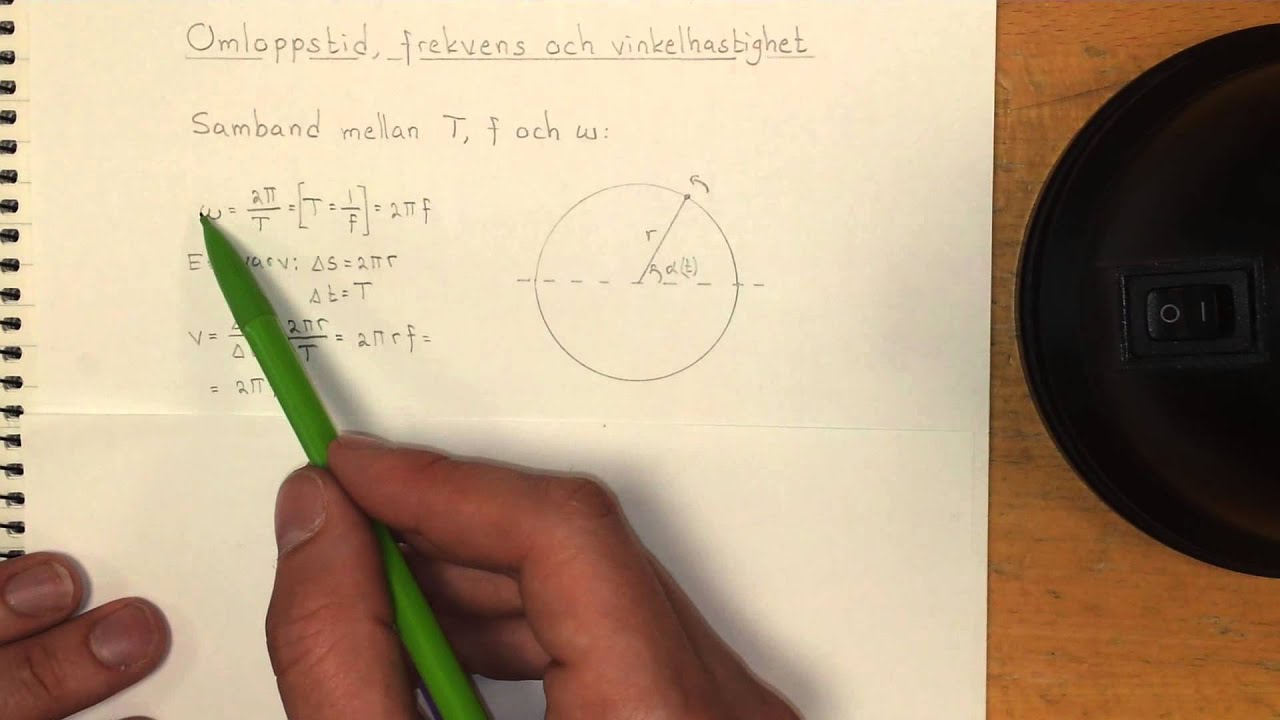 Omloppstid, frekvens och vinkelhastighet
Samband mellan T, f och ω:
ω = 2π/T = [T = 1/f] = 2πf
varv: Δs = 2πr
Δt = T
v = 2πr/T = 2πrf =
= 2π
r
α(t)
O I